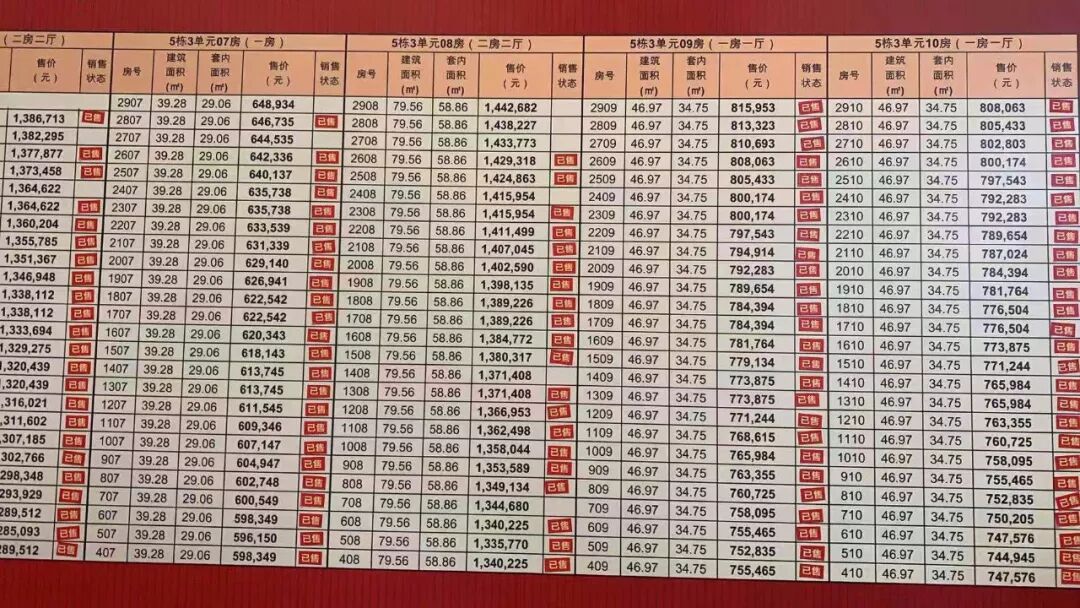 (二房二厅) 5栋3单元07房(一房) 5栋3单元08房(二房二厅) 5栋3单元09房(一房一厅) 5栋3单元10房(一房一厅)
售价(元) 销售状态 房号 建筑面积(㎡) 套内面积(㎡) 售价(元) 销售状态 房号 建筑面积(㎡) 套内面积(㎡) 售价(元) 销售状态 房号 建筑面积(㎡) 套内面积(㎡) 售价(元) 销售状态 房号 建筑面积(㎡) 套内面积(㎡) 售价(元) 销售状态
2907 39.28 29.06 648,934 2908 79.56 58.86 1,442,682 2909 46.97 34.75 815,953 已售 2910 46.97 34.75 808,063 已售
1,386,713 已售 2807 39.28 29.06 646,735 已售 2808 79.56 58.86 1,438,227 2809 46.97 34.75 813,323 已售 2810 46.97 34.75 805,433 已售
1,382,295 2707 39.28 29.06 644,535 2708 79.56 58.86 1,433,773 2709 46.97 34.75 810,693 已售 2710 46.97 34.75 802,803 已售
1,377,877 已售 2607 39.28 29.06 642,336 已售 2608 79.56 58.86 1,429,318 已售 2609 46.97 34.75 808,063 已售 2610 46.97 34.75 800,174 已售
1,373,458 已售 2507 39.28 29.06 640,137 已售 2508 79.56 58.86 1,424,863 已售 2509 46.97 34.75 805,433 已售 2510 46.97 34.75 797,543 已售
1,364,622 2407 39.28 29.06 635,738 已售 2408 79.56 58.86 1,415,954 2409 46.97 34.75 800,174 已售 2410 46.97 34.75 792,283 已售
1,364,622 已售 2307 39.28 29.06 635,738 已售 2308 79.56 58.86 1,415,954 已售 2309 46.97 34.75 800,174 已售 2310 46.97 34.75 792,283 已售
1,360,204 已售 2207 39.28 29.06 633,539 已售 2208 79.56 58.86 1,411,499 已售 2209 46.97 34.75 797,543 已售 2210 46.97 34.75 789,654 已售
1,355,785 已售 2107 39.28 29.06 631,339 已售 2108 79.56 58.86 1,407,045 已售 2109 46.97 34.75 794,914 已售 2110 46.97 34.75 787,024 已售
1,351,367 已售 2007 39.28 29.06 629,140 已售 2008 79.56 58.86 1,402,590 已售 2009 46.97 34.75 792,283 已售 2010 46.97 34.75 784,394 已售
1,346,948 已售 1907 39.28 29.06 626,941 已售 1908 79.56 58.86 1,398,135 已售 1909 46.97 34.75 789,654 已售 1910 46.97 34.75 781,764 已售
1,338,112 已售 1807 39.28 29.06 622,542 已售 1808 79.56 58.86 1,389,226 已售 1809 46.97 34.75 784,394 已售 1810 46.97 34.75 776,504 已售
1,338,112 已售 1707 39.28 29.06 622,542 已售 1708 79.56 58.86 1,389,226 已售 1709 46.97 34.75 784,394 已售 1710 46.97 34.75 776,504 已售
1,333,694 已售 1607 39.28 29.06 620,343 已售 1608 79.56 58.86 1,384,772 已售 1609 46.97 34.75 781,764 已售 1610 46.97 34.75 773,875 已售
1,329,275 已售 1507 39.28 29.06 618,143 已售 1508 79.56 58.86 1,380,317 已售 1509 46.97 34.75 779,134 已售 1510 46.97 34.75 771,244 已售
1,320,439 已售 1407 39.28 29.06 613,745 已售 1408 79.56 58.86 1,371,408 1409 46.97 34.75 773,875 已售 1410 46.97 34.75 765,984 已售
1,320,439 已售 1307 39.28 29.06 613,745 已售 1308 79.56 58.86 1,371,408 已售 1309 46.97 34.75 773,875 已售 1310 46.97 34.75 765,984 已售
1,316,021 已售 1207 39.28 29.06 611,545 已售 1208 79.56 58.86 1,366,953 已售 1209 46.97 34.75 771,244 已售 1210 46.97 34.75 763,355 已售
,311,602 已售 1107 39.28 29.06 609,346 已售 1108 79.56 58.86 1,362,498 已售 1109 46.97 34.75 768,615 已售 1110 46.97 34.75 760,725 已售
,307,185 已售 1007 39.28 29.06 607,147 已售 1008 79.56 58.86 1,358,044 已售 1009 46.97 34.75 765,984 已售 1010 46.97 34.75 758,095 已售
,302,766 已售 907 39.28 29.06 604,947 已售 908 79.56 58.86 1,353,589 已售 909 46.97 34.75 763,355 已售 910 46.97 34.75 755,465 已售
,298,348 已售 807 39.28 29.06 602,748 已售 808 79.56 58.86 1,349,134 已售 809 46.97 34.75 760,725 已售 810 46.97 34.75 752,835 已售
,293,929 已售 707 39.28 29.06 600,549 已售 708 79.56 58.86 1,344,680 709 46.97 34.75 758,095 已售 710 46.97 34.75 750,205 已售
289,512 已售 607 39.28 29.06 598,349 已售 608 79.56 58.86 1,340,225 已售 609 46.97 34.75 755,465 已售 610 46.97 34.75 747,576 已售
285,093 已售 507 39.28 29.06 596,150 已售 508 79.56 58.86 1,335,770 已售 509 46.97 34.75 752,835 已售 510 46.97 34.75 744,945 已售
289,512 已售 407 39.28 29.06 598,349 已售 408 79.56 58.86 1,340,225 已售 409 46.97 34.75 755,465 已售 410 46.97 34.75 747,576 已售